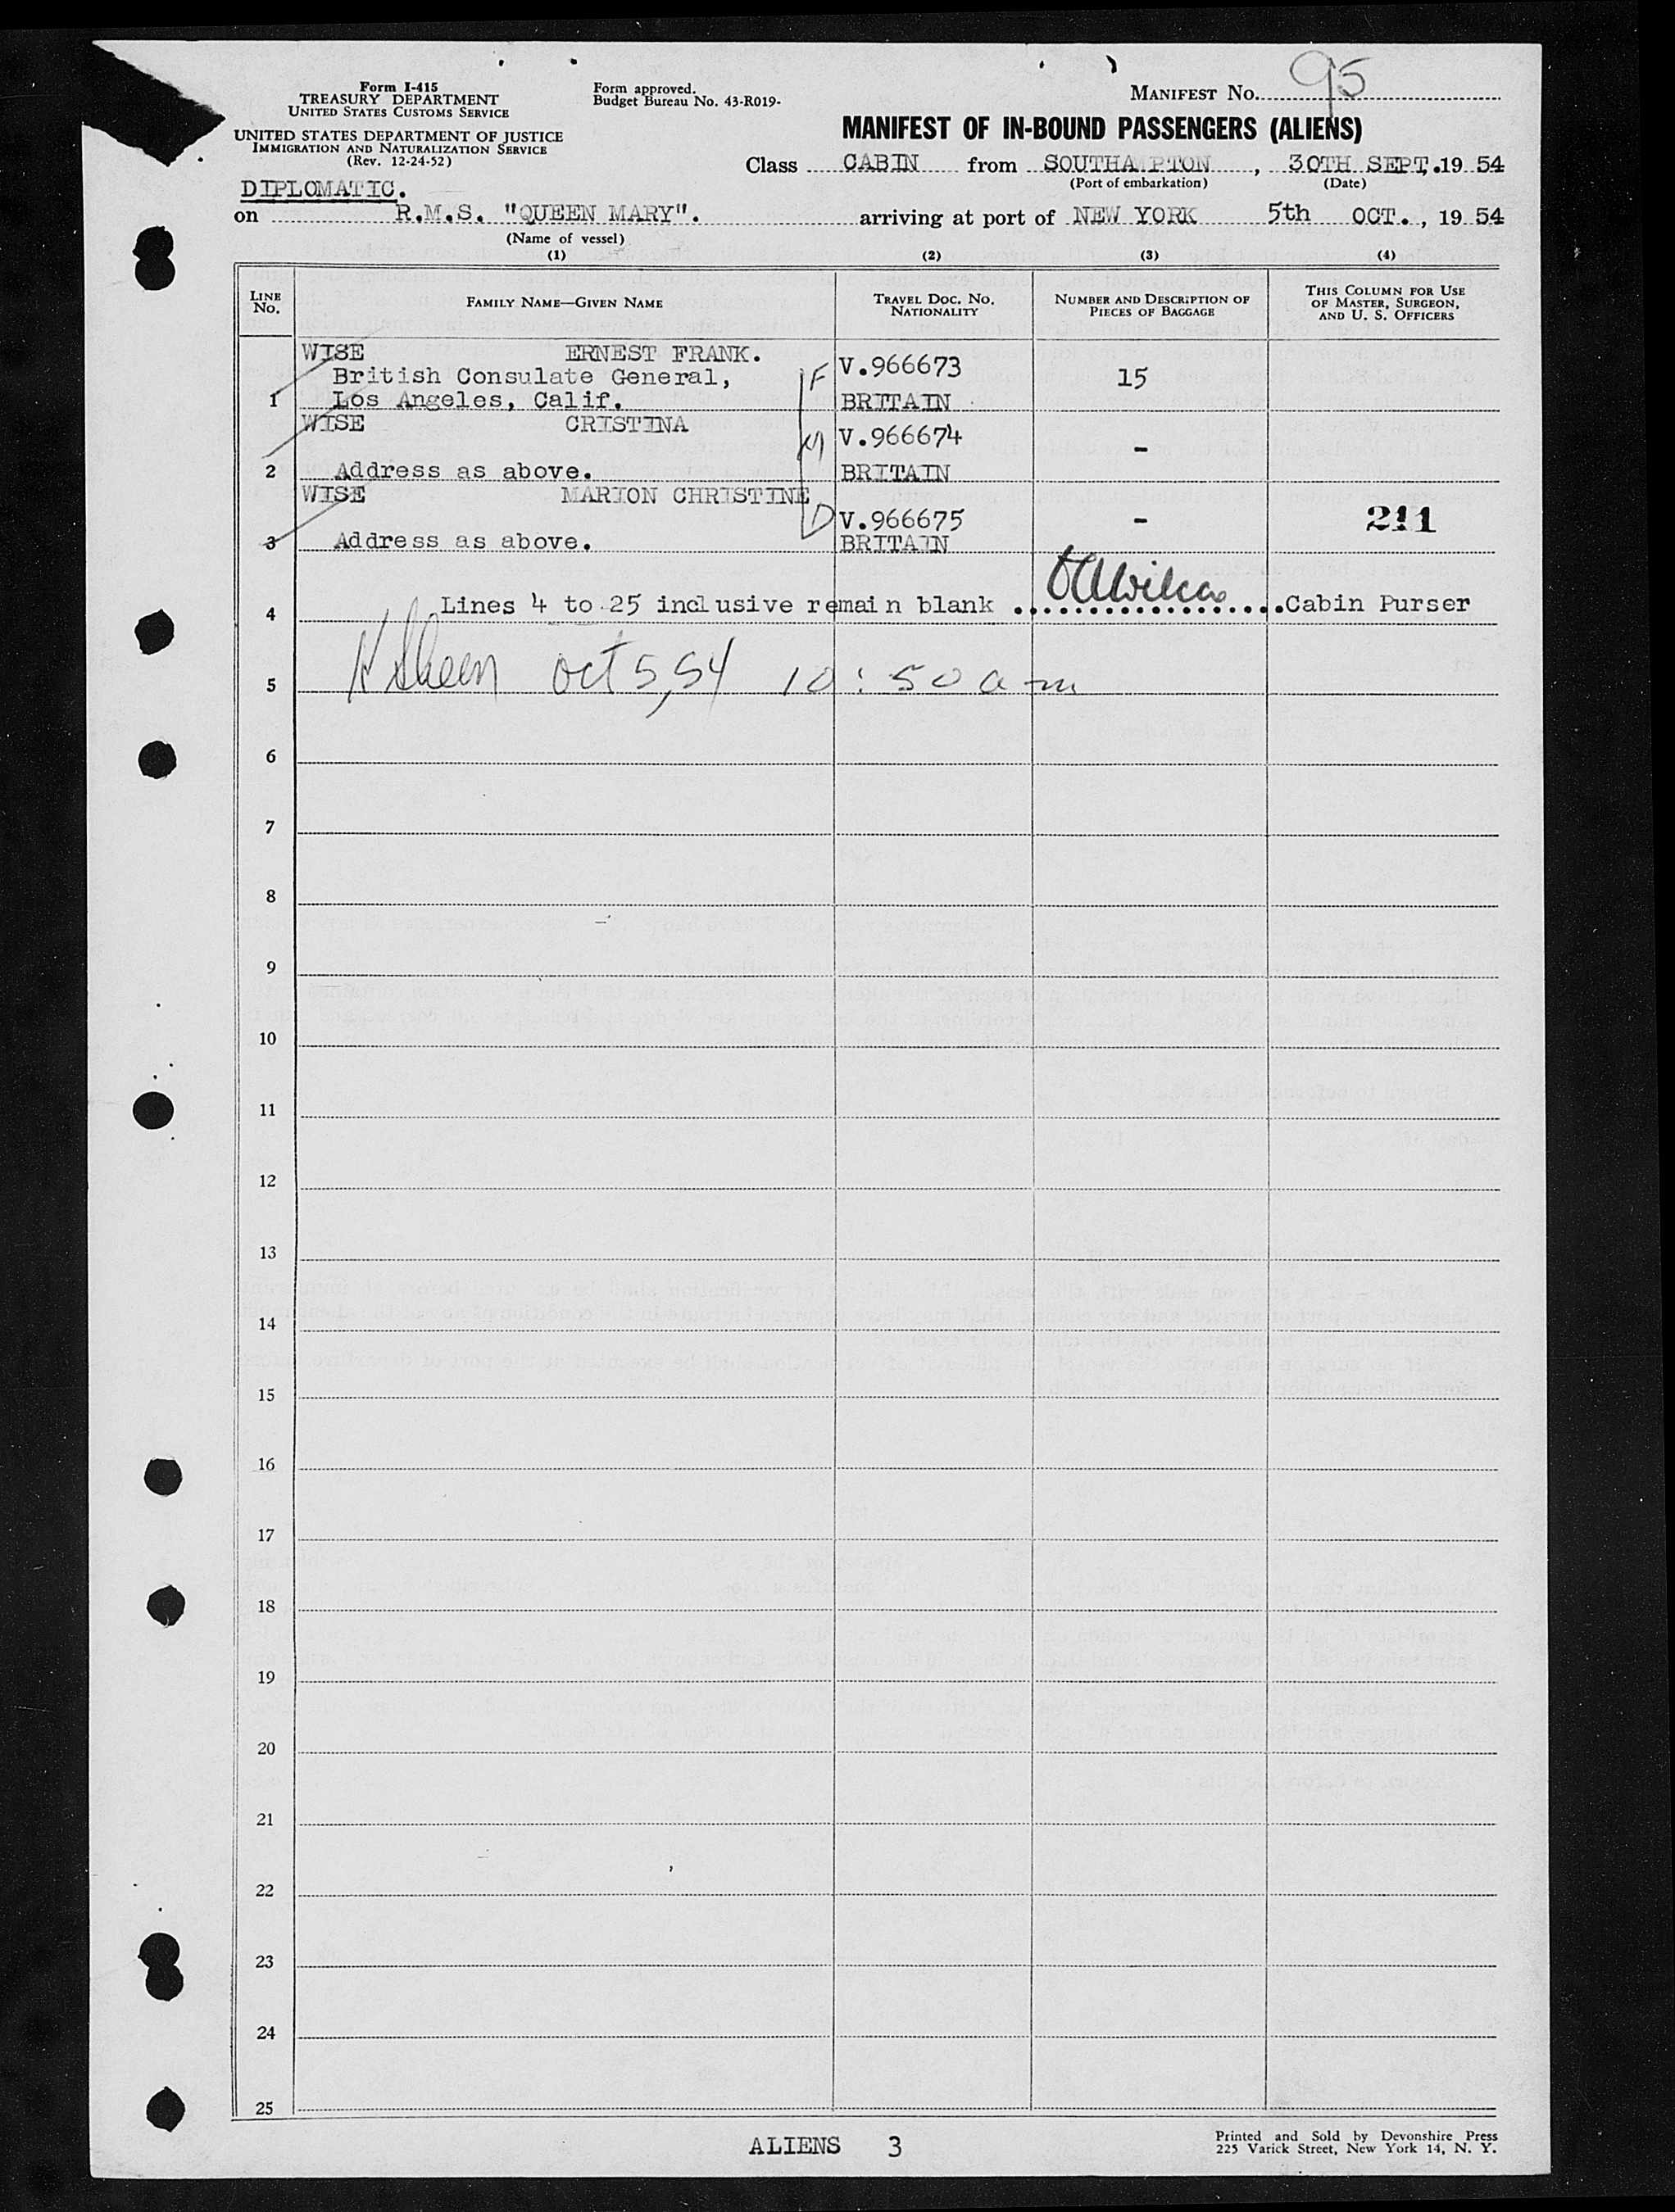 Form I-415
TREASURY DEPARTMENT
UNITED STATES CUSTOMS SERVICE
UNITED STATES DEPARTMENT OF JUSTICE
IMMIGRATION AND NATURALIZATION SERVICE
(Rev. 12-24-52)
Form approved.
Budget Bureau No. 43-R019-
MANIFEST NO. 95
MANIFEST OF IN-BOUND PASSENGERS (ALIENS)
Class CABIN from SOUTHAMPTON, 30TH SEPT, 19 54
(Port of embarkation) (Date)
DIPLOMATIC.
on R.M.S. "QUEEN MARY". arriving at port of NEW YORK 5th OCT., 19 54
(Name of vessel)
(1) (2) (3) (4)
LINE NO. FAMILY NAME—GIVEN NAME TRAVEL DOC. NO. NATIONALITY NUMBER AND DESCRIPTION OF PIECES OF BAGGAGE THIS COLUMN FOR USE OF MASTER, SURGEON, AND U. S. OFFICERS
WISE ERNEST FRANK.
British Consulate General, F V.966673 15
1 Los Angeles, Calif. BRITAIN
WISE CRISTINA
M V.966674 -
2 Address as above. BRITAIN
WISE MARION CHRISTINE
D V.966675 - 211
3 Address as above. BRITAIN
4 Lines 4 to 25 inclusive remain blank Cabin Purser
5 Oct 5, 54 10:50 am
6
7
8
9
10
11
12
13
14
15
16
17
18
19
20
21
22
23
24
25
ALIENS 3
Printed and Sold by Devonshire Press
225 Varick Street, New York 14, N. Y.